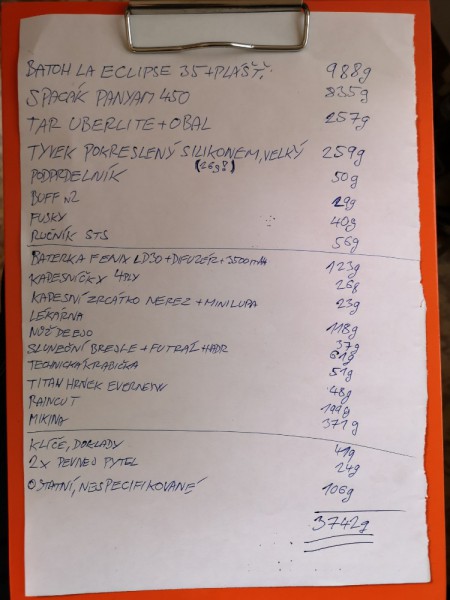 BATOH LA ECLIPSE 35+PLÁŠŤ. 988g
SPACÁK PANYAM 450 835g
TAR UBERLITE+OBAL 257g
TYVEK POKRESLENÝ SILIKONEM, VELKÝ 259g
(26g?)
PODPRDELNÍK 50g
BUFF n2 29g
FUSKY 40g
RUČNÍK STS 56g
BATERKA FENIX LD30+DIFUZÉR+3500mAh 123g
KAPESNÍČKY 4PLY 26g
KAPESNÍ ZRCÁTKO NEREZ + MINILUPA 23g
LÉKÁRNA 118g
NŮŽ DEEJO 37g
SLUNEČNÍ BREJLE + FUTRÁL + HADR 61g
TECHNICKÁ KRABIČKA 51g
TITAN HRNEK EVERNEW 48g
RAINCUT 199g
MIKINA 371g
KLÍČE, DOKLADY 41g
2x PEVNEJ PYTEL 24g
OSTATNÍ, NESPECIFIKOVANÉ 106g
3742g